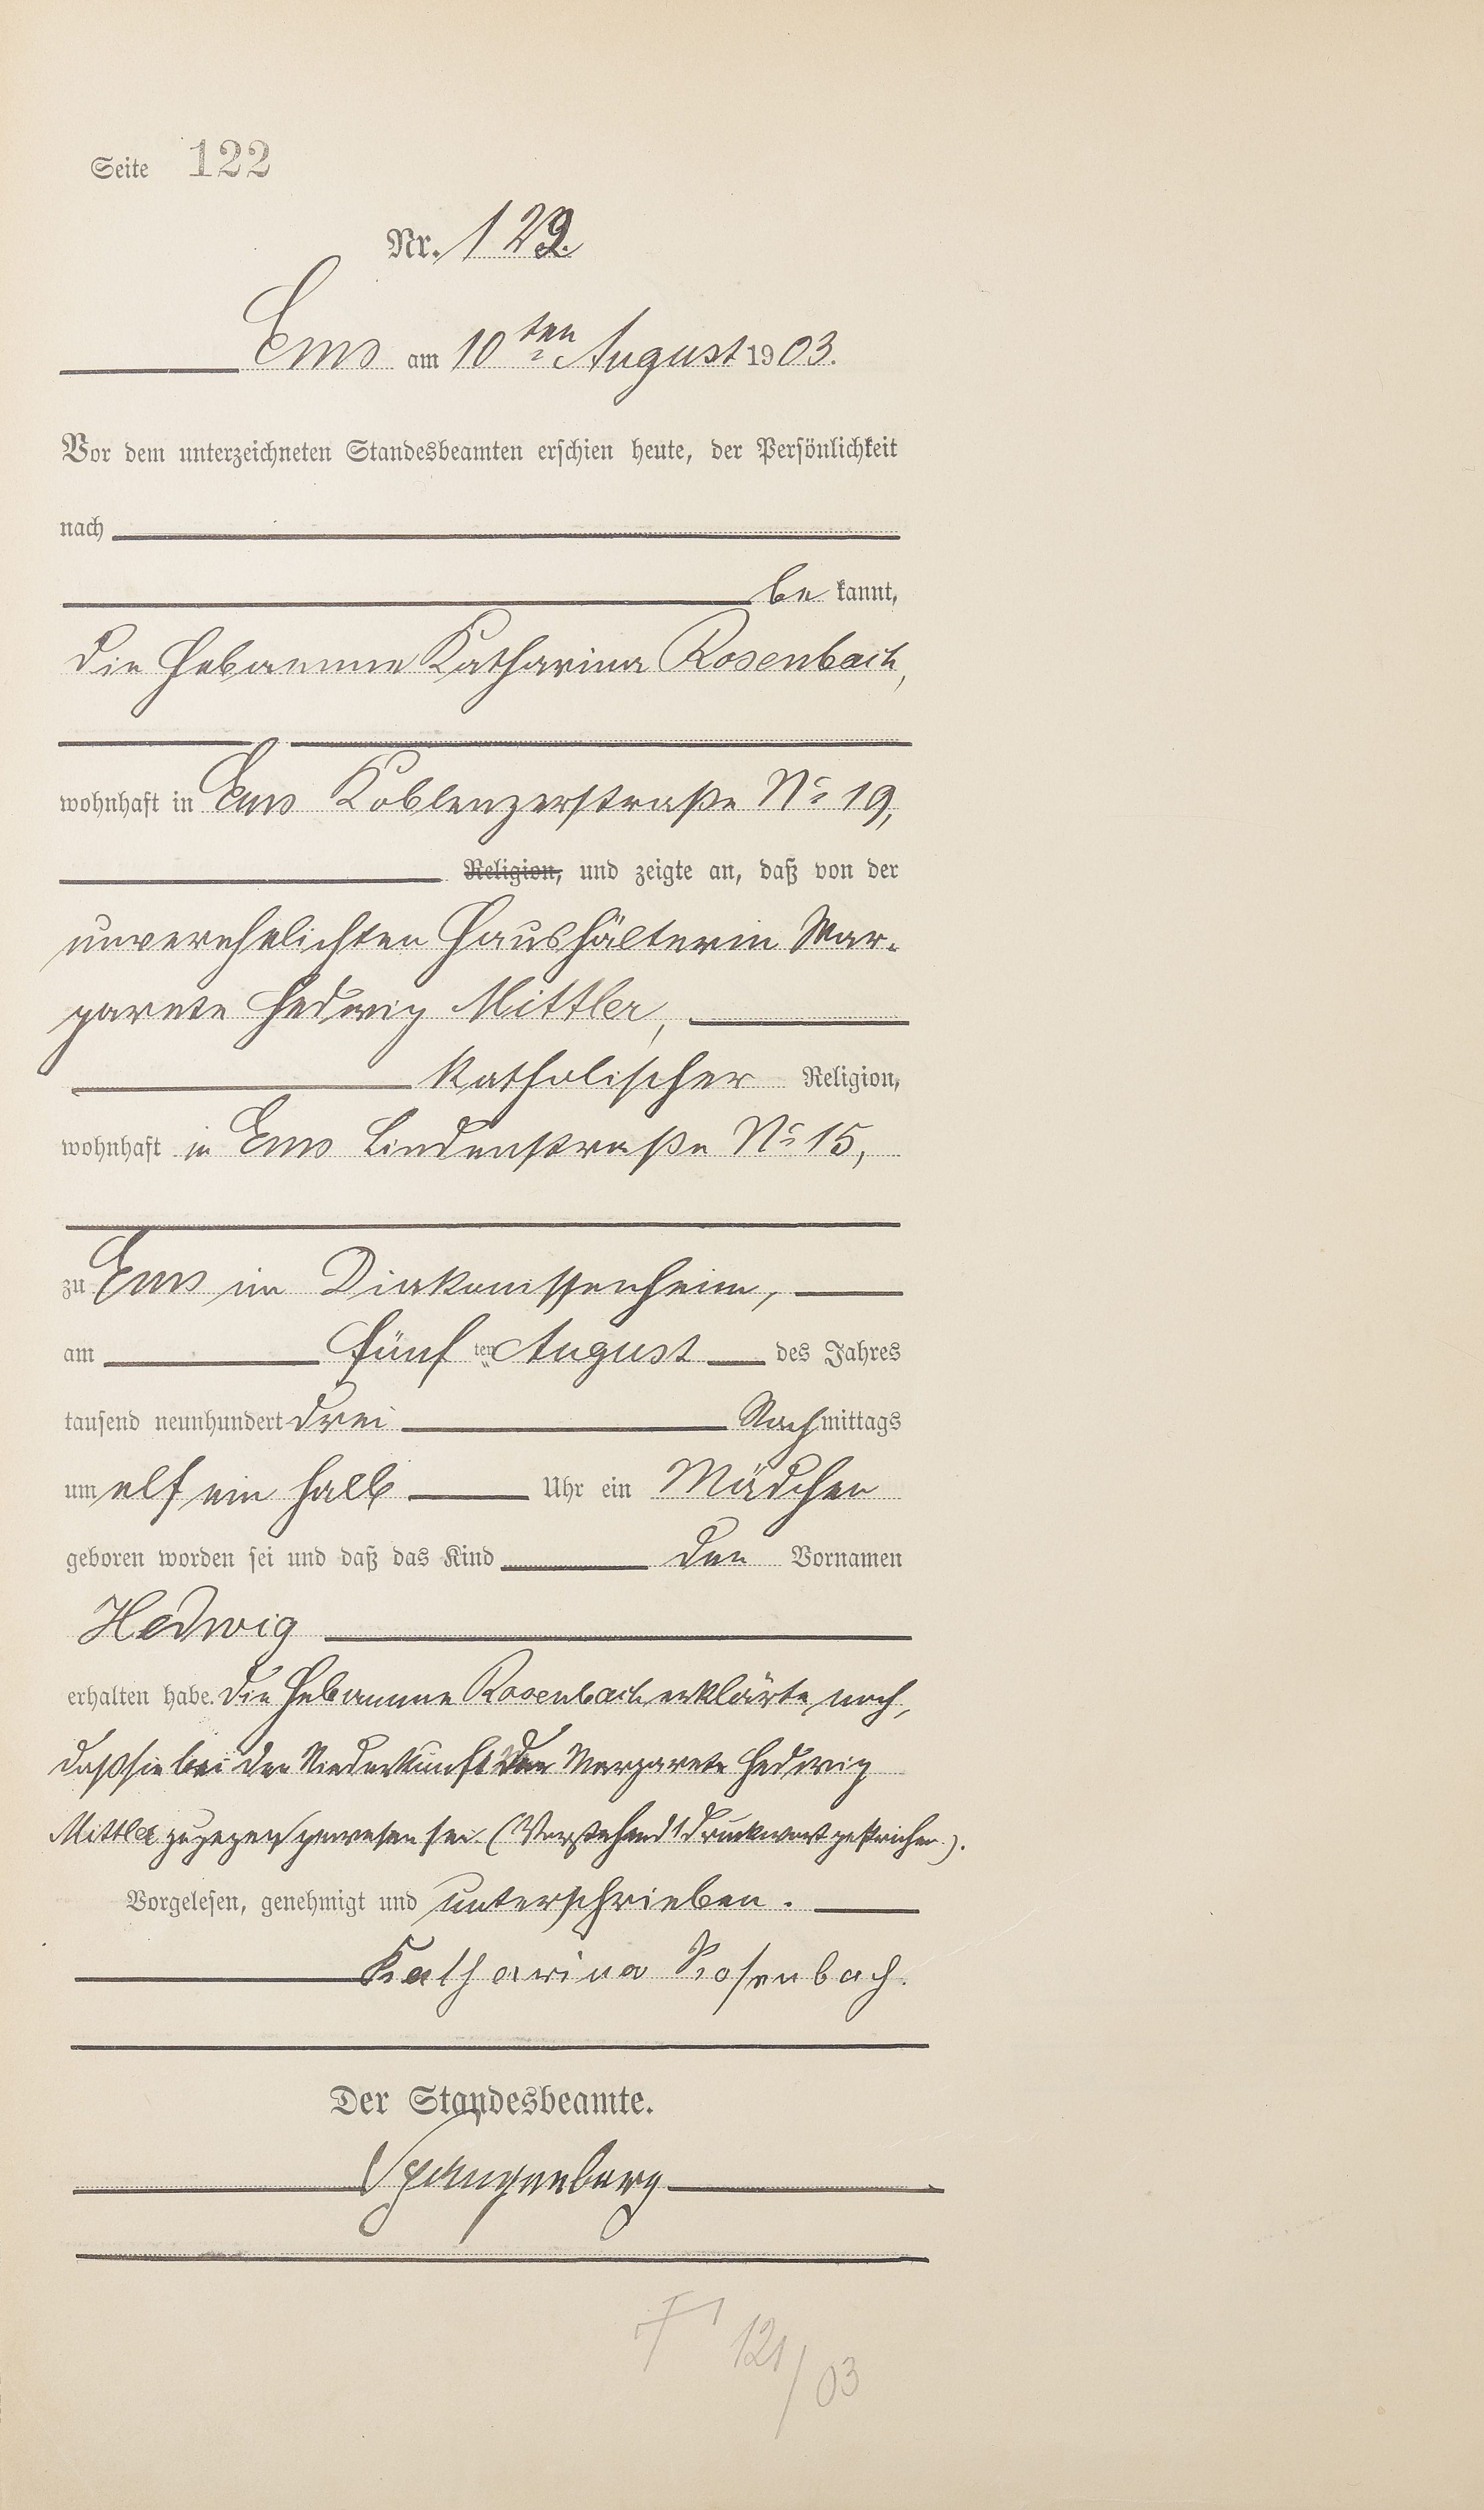 Seite 122
Nr. 122.
Ems am 10ten August 1903.
Vor dem unterzeichneten Standesbeamten erschien heute, der Persönlichkeit
nach
be kannt,
die Hebamme Katharina Rosenbach,
wohnhaft in Ems Koblenzerstraße No 19,
Religion, und zeigte an, daß von der
unverehelichten Haushälterin Mar-
garete Hedwig Mittler,
katholischer Religion,
wohnhaft in Ems Lindenstraße No 15,
zu Ems im Diakonissenheim,
am fünf ten August des Jahres
tausend neunhundert drei Nachmittags
um elf ein halb Uhr ein Mädchen
geboren worden sei und daß das Kind den Vornamen
Hedwig
erhalten habe. Die Hebamme Rosenbach erklärte noch,
daß sie bei der Niederkunft der Margarete Hedwig
Mittler zugegen gewesen sei. (Vorstehend 1 Druckwort gestrichen.).
Vorgelesen, genehmigt und unterschrieben.
Katharina Rosenbach.
Der Standesbeamte.
Spangenberg
121/03